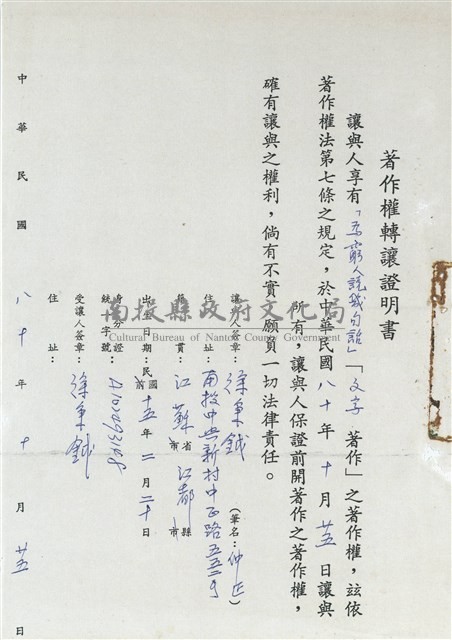 著作權轉讓證明書
讓與人享有「為窮人說幾句話」「文字 著作」之著作權，茲依
著作權法第七條之規定，於中華民國八十年十月廿五日讓與
所有，讓與人保證前開著作之著作權，
確有讓與之權利，倘有不實，願負一切法律責任。
讓與人簽章：徐秉鉞 （筆名：仲匹）
住 址：南投中興新村中正路五五二號
籍 貫：江蘇 省 市 江都 縣 市
出生日期：民 國 前 十五年二月二十日
身分證
統一字號：
受讓人簽章：徐秉鉞
住 址：
中華民國 八十年十月廿五日
南投縣政府文化局
Cultural Bureau of Nantou County Government